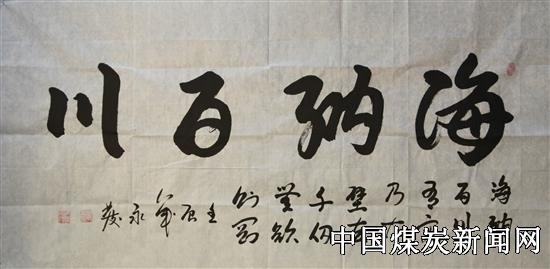 海纳百川
海纳
百川
有容
乃大
壁立
千仞
無欲
则刚
壬辰
年
永
發
中国煤炭新闻网